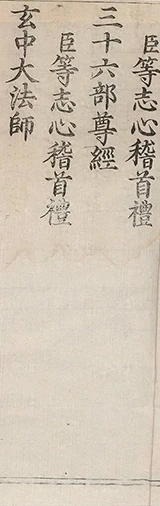 臣等志心稽首禮
三十六部尊經
臣等志心稽首禮
玄中大法師